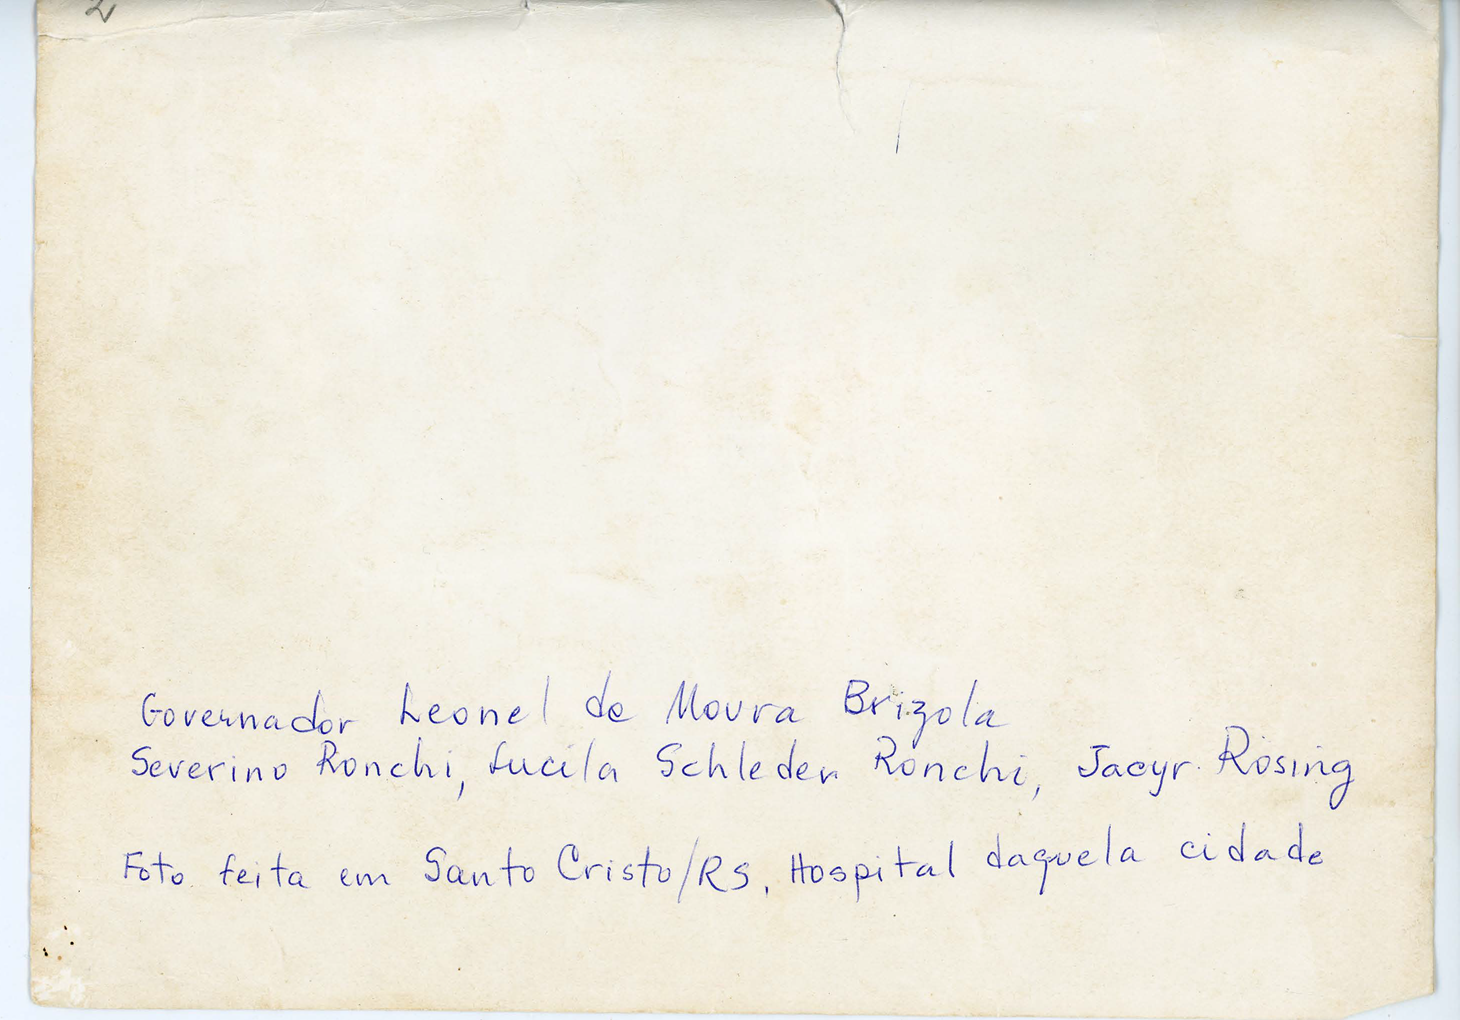 2
Governador Leonel de Moura Brizola
Severino Ronchi, Lucila Schleder Ronchi, Jacyr Rösing
Foto feita em Santo Cristo/RS, Hospital daquela cidade